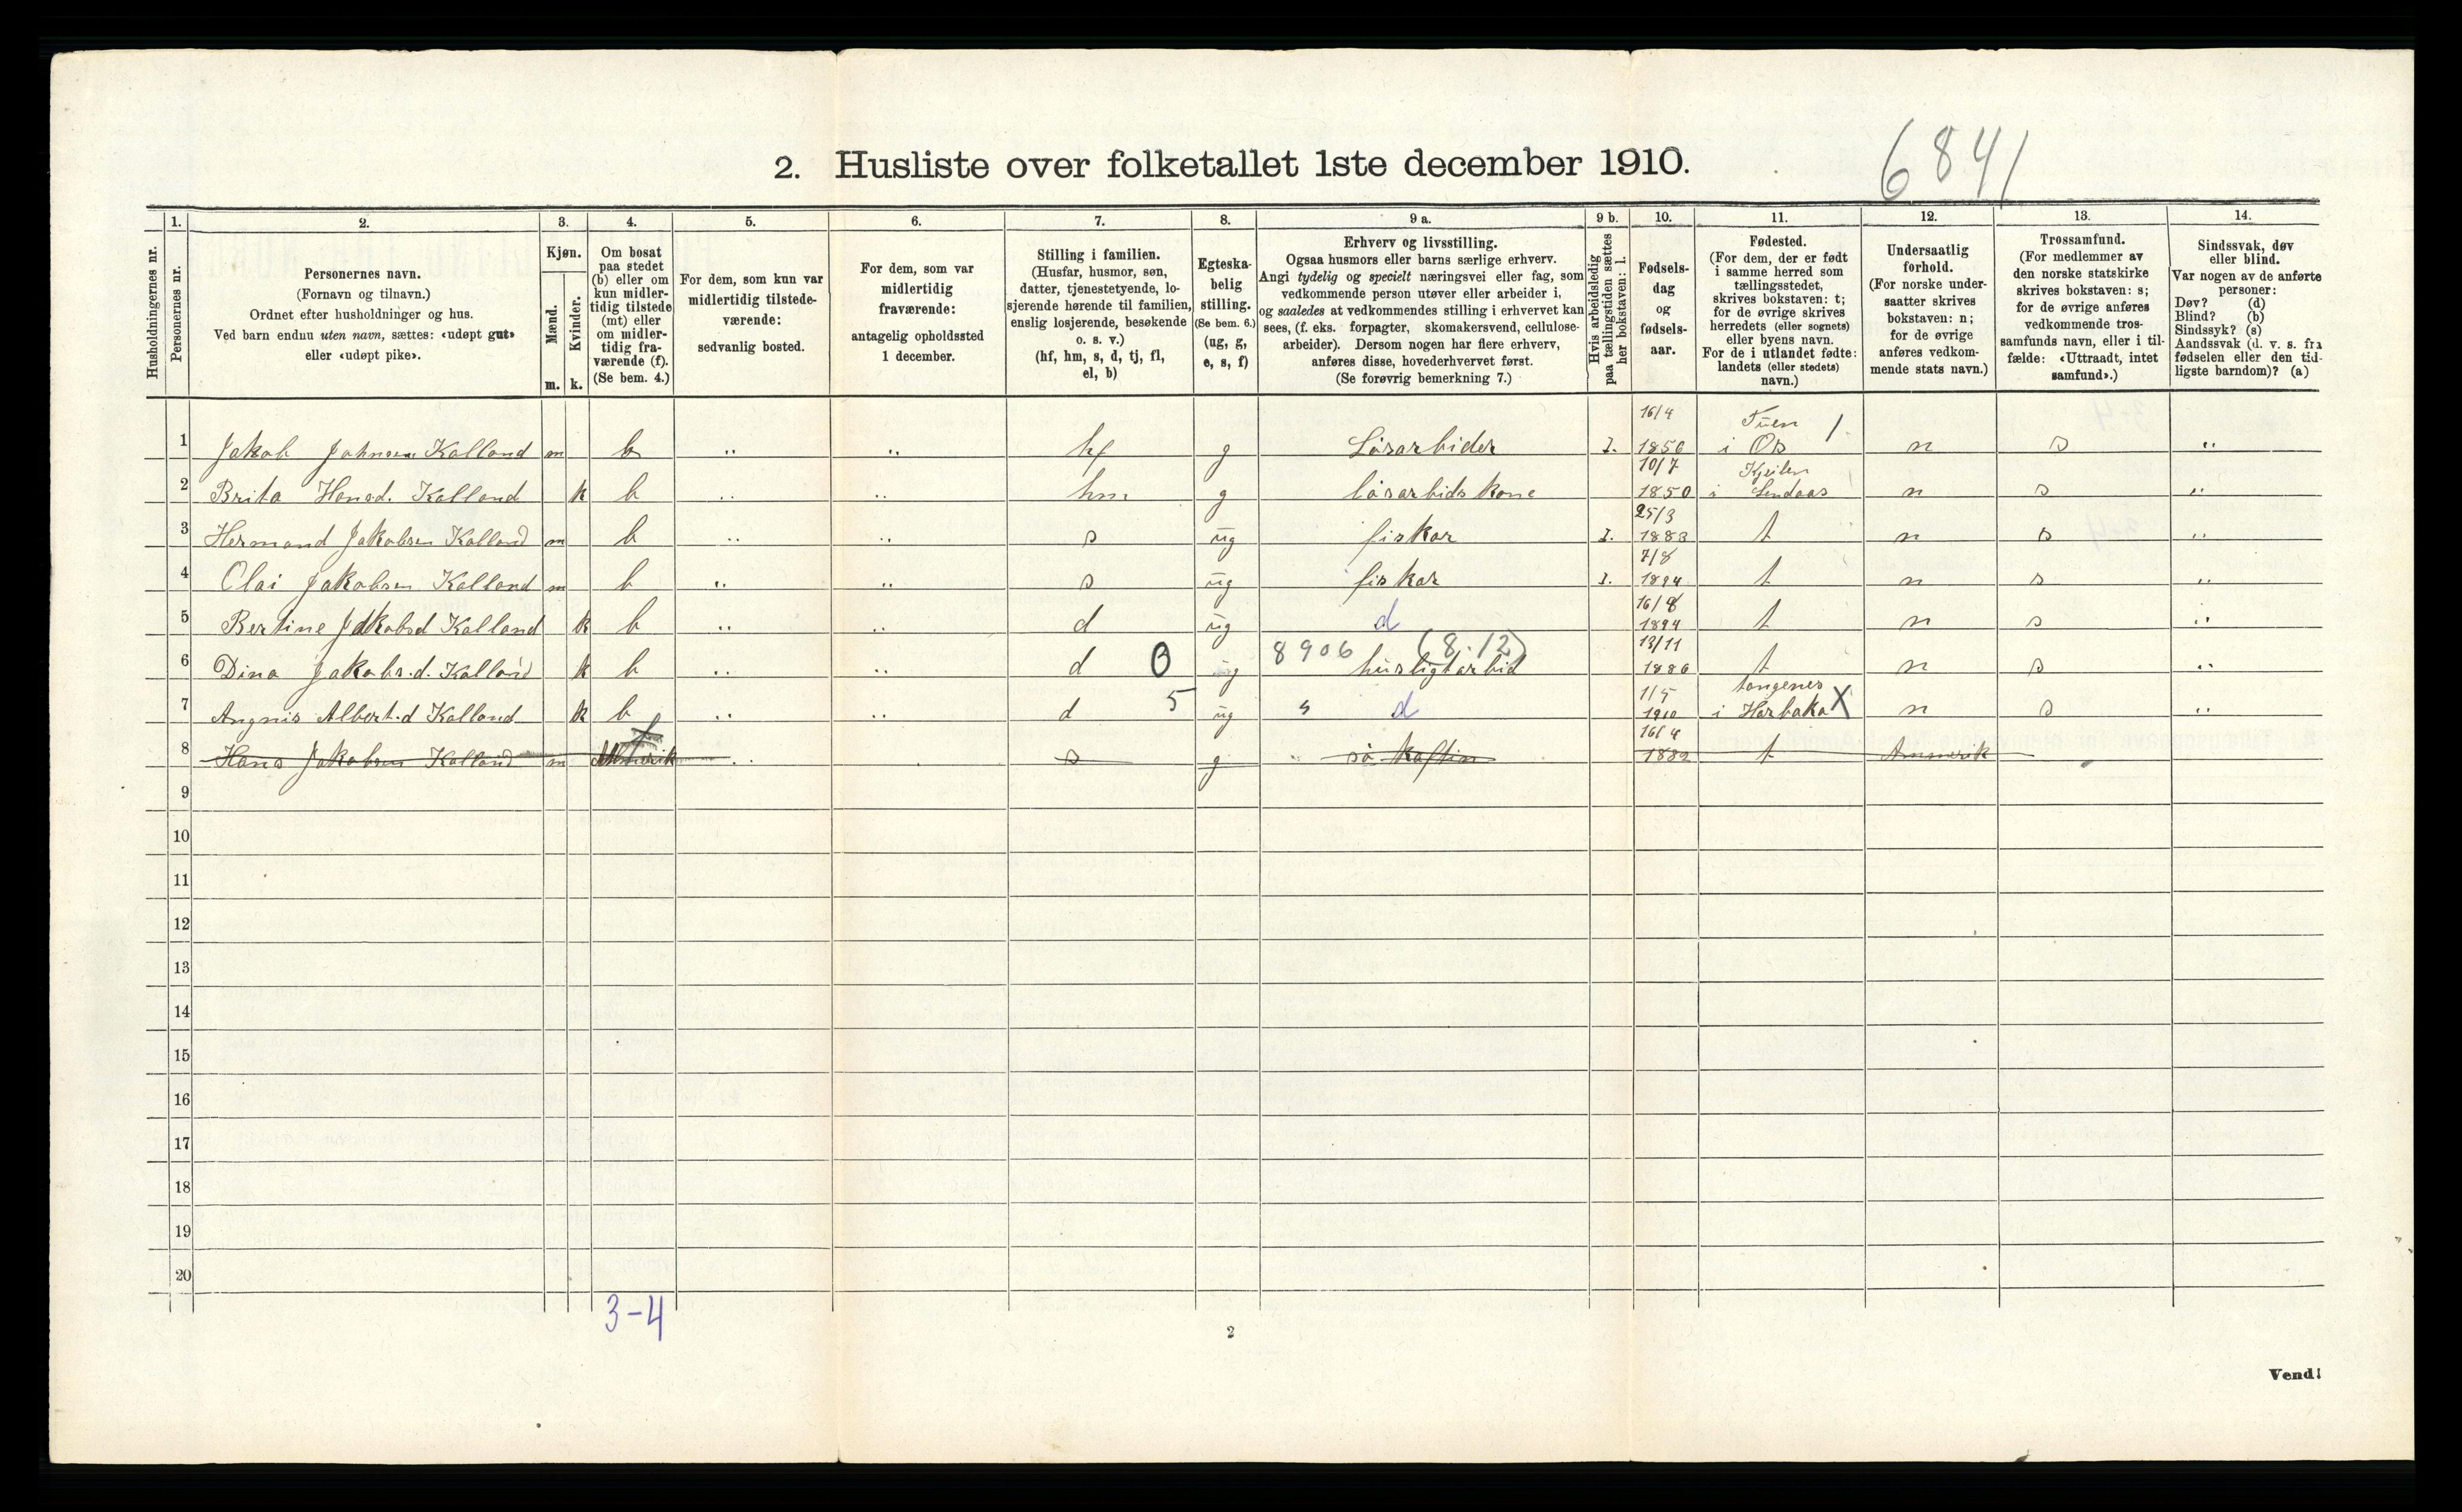 6841
2. Husliste over folketallet 1ste december 1910.
Husholdningernes nr.
1. Personernes nr.
2. Personernes navn.
(Fornavn og tilnavn.)
Ordnet efter husholdninger og hus.
Ved barn endnu uten navn, sættes: «udøpt gut»
eller «udøpt pike».
3. Kjøn.
Mænd. m.
Kvinder. k.
4. Om bosat
paa stedet
(b) eller om
kun midler-
tidig tilstede
(mt) eller
om midler-
tidig fra-
værende (f).
(Se bem. 4.)
5. For dem, som kun var
midlertidig tilstede-
værende:
sedvanlig bosted.
6. For dem, som var
midlertidig
fraværende:
antagelig opholdssted
1 december.
7. Stilling i familien.
(Husfar, husmor, søn,
datter, tjenestetyende, lo-
sjerende hørende til familien,
enslig losjerende, besøkende
o. s. v.)
(hf, hm, s, d, tj, fl,
el, b)
8. Egteska-
belig
stilling.
(Se bem. 6.)
(ug, g,
e, s, f)
9 a. Erhverv og livsstilling.
Ogsaa husmors eller barns særlige erhverv.
Angi tydelig og specielt næringsvei eller fag, som
vedkommende person utøver eller arbeider i,
og saaledes at vedkommendes stilling i erhvervet kan
sees, (f. eks. forpagter, skomakersvend, cellulose-
arbeider). Dersom nogen har flere erhverv,
anføres disse, hovederhvervet først.
(Se forøvrig bemerkning 7.)
9 b. Hvis arbeidsledig
paa tællingstiden sættes
her bokstaven: l.
10. Fødsels-
dag
og
fødsels-
aar.
11. Fødested.
(For dem, der er født
i samme herred som
tællingsstedet,
skrives bokstaven: t;
for de øvrige skrives
herredets (eller sognets)
eller byens navn.
For de i utlandet fødte:
landets (eller stedets)
navn.)
12. Undersaatlig
forhold.
(For norske under-
saatter skrives
bokstaven: n;
for de øvrige
anføres vedkom-
mende stats navn.)
13. Trossamfund.
(For medlemmer av
den norske statskirke
skrives bokstaven: s;
for de øvrige anføres
vedkommende tros-
samfunds navn, eller i til-
fælde: «Uttraadt, intet
samfund».)
14. Sindssvak, døv
eller blind.
Var nogen av de anførte
personer:
Døv? (d)
Blind? (b)
Sindssyk? (s)
Aandssvak (d. v. s. fra
fødselen eller den tid-
ligste barndom)? (a)
1 Jakob Johnsen Kalland m b ,, ,, hf g Løsarbider l. 16/4 1850 i Os n s ,,
2 Brita Hansd. Kalland k b ,, ,, hm g løsarbids kone 10/7 1850 i Lindaas n s ,,
3 Hermand Jakobsen Kalland m b ,, ,, s ug fisker l. 25/3 1883 t n s ,,
4 Olai Jakobsen Kalland m b ,, ,, s ug fisker l. 7/8 1894 t n s ,,
5 Bertine Jakobsd Kalland k b ,, ,, d ug d 16/8 1894 t n s ,,
8906 (8.12)
6 Dina Jakobs.d. Kalland k b ,, ,, d 0 ug husligtarbid 13/11 1886 t n s ,,
7 Angnis Albert.d Kalland k b ,, ,, d 5 ug d 1/5 1910 tangenes i Herbaka X n s ,,
8 Hans Jakobsen Kalland m Ammerik s g sø kaftin 16/4 1882 t Ammerik
9
10
11
12
13
14
15
16
17
18
19
20
3-4
2
Vend!